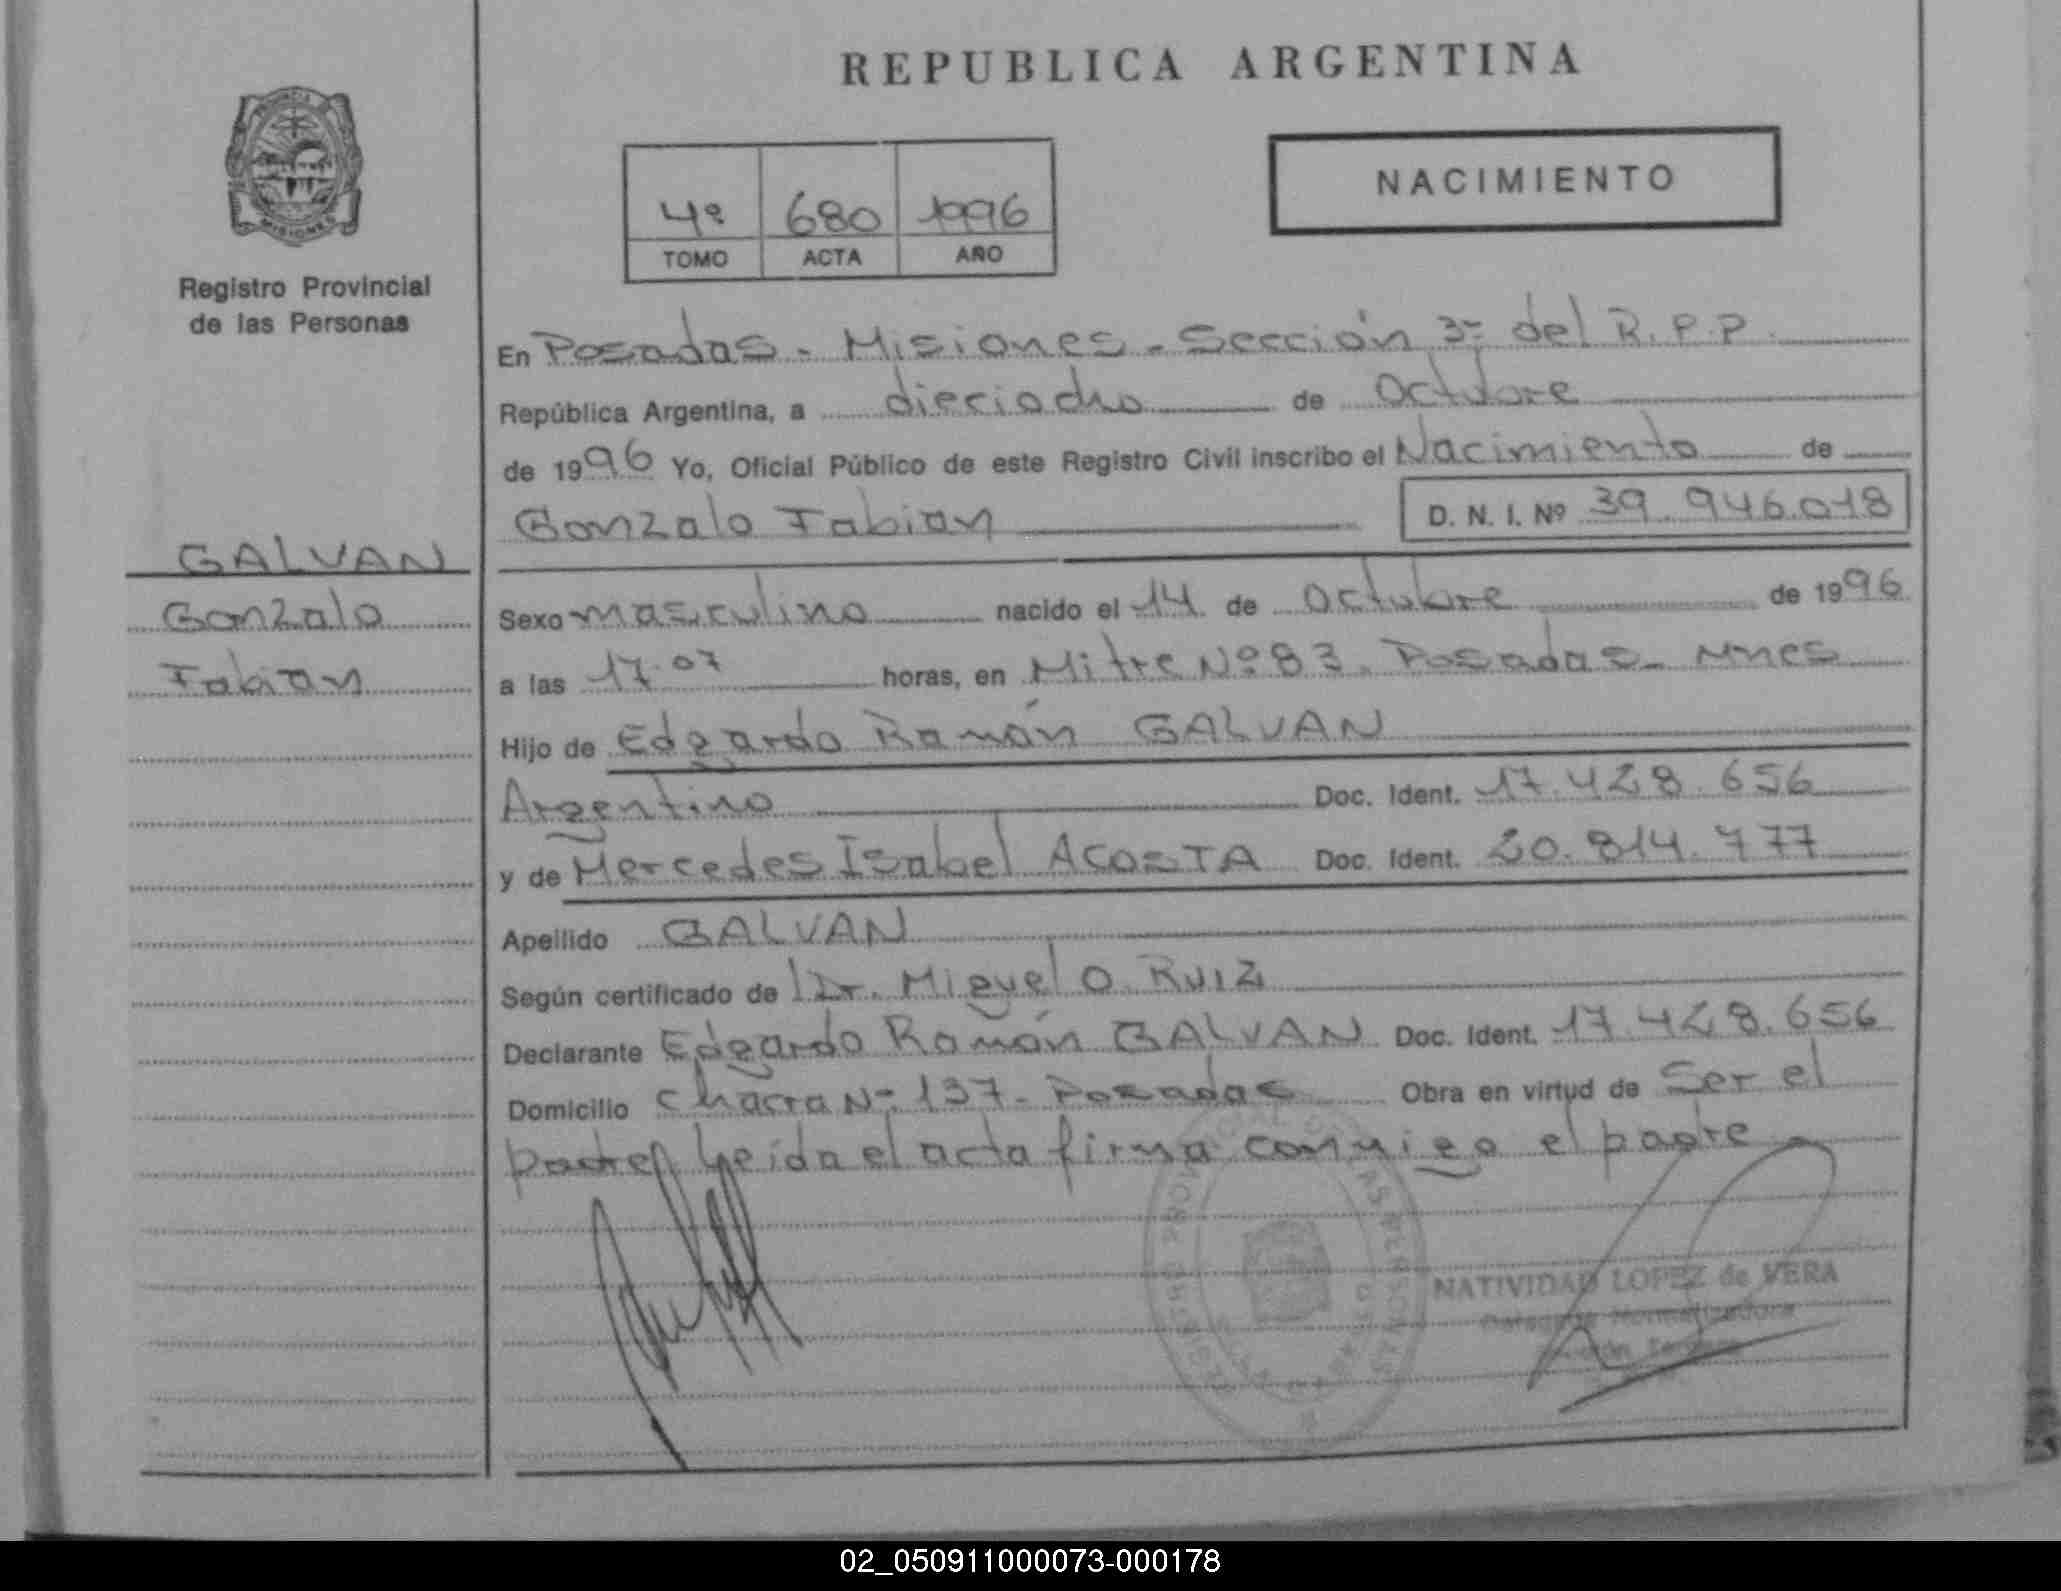 REPUBLICA ARGENTINA
PROVINCIA DE
MISIONES
Registro Provincial
de las Personas
4º 680 1996
TOMO ACTA AÑO
NACIMIENTO
En Posadas - Misiones - Sección 3ª del R.P.P.
República Argentina, a dieciocho de Octubre
de 1996 Yo, Oficial Público de este Registro Civil inscribo el Nacimiento de
Gonzalo Fabian D. N. I. Nº 39.946.018
GALVAN
Gonzalo
Fabian
Sexo masculino nacido el 14 de Octubre de 1996
a las 17.07 horas, en Mitre Nº 83. Posadas - Mnes
Hijo de Edgardo Ramón GALVAN
Argentino Doc. Ident. 17.428.656
y de Mercedes Isabel ACOSTA Doc. Ident. 20.814.777
Apellido GALVAN
Según certificado de Dr. Miguel O. Ruiz
Declarante Edgardo Ramón GALVAN Doc. Ident. 17.428.656
Domicilio Chacra Nº 137 - Posadas Obra en virtud de Ser el
padre Leída el acta firma conmigo el padre
NATIVIDAD LOPEZ de VERA
Delegada Normalizadora
02_050911000073-000178